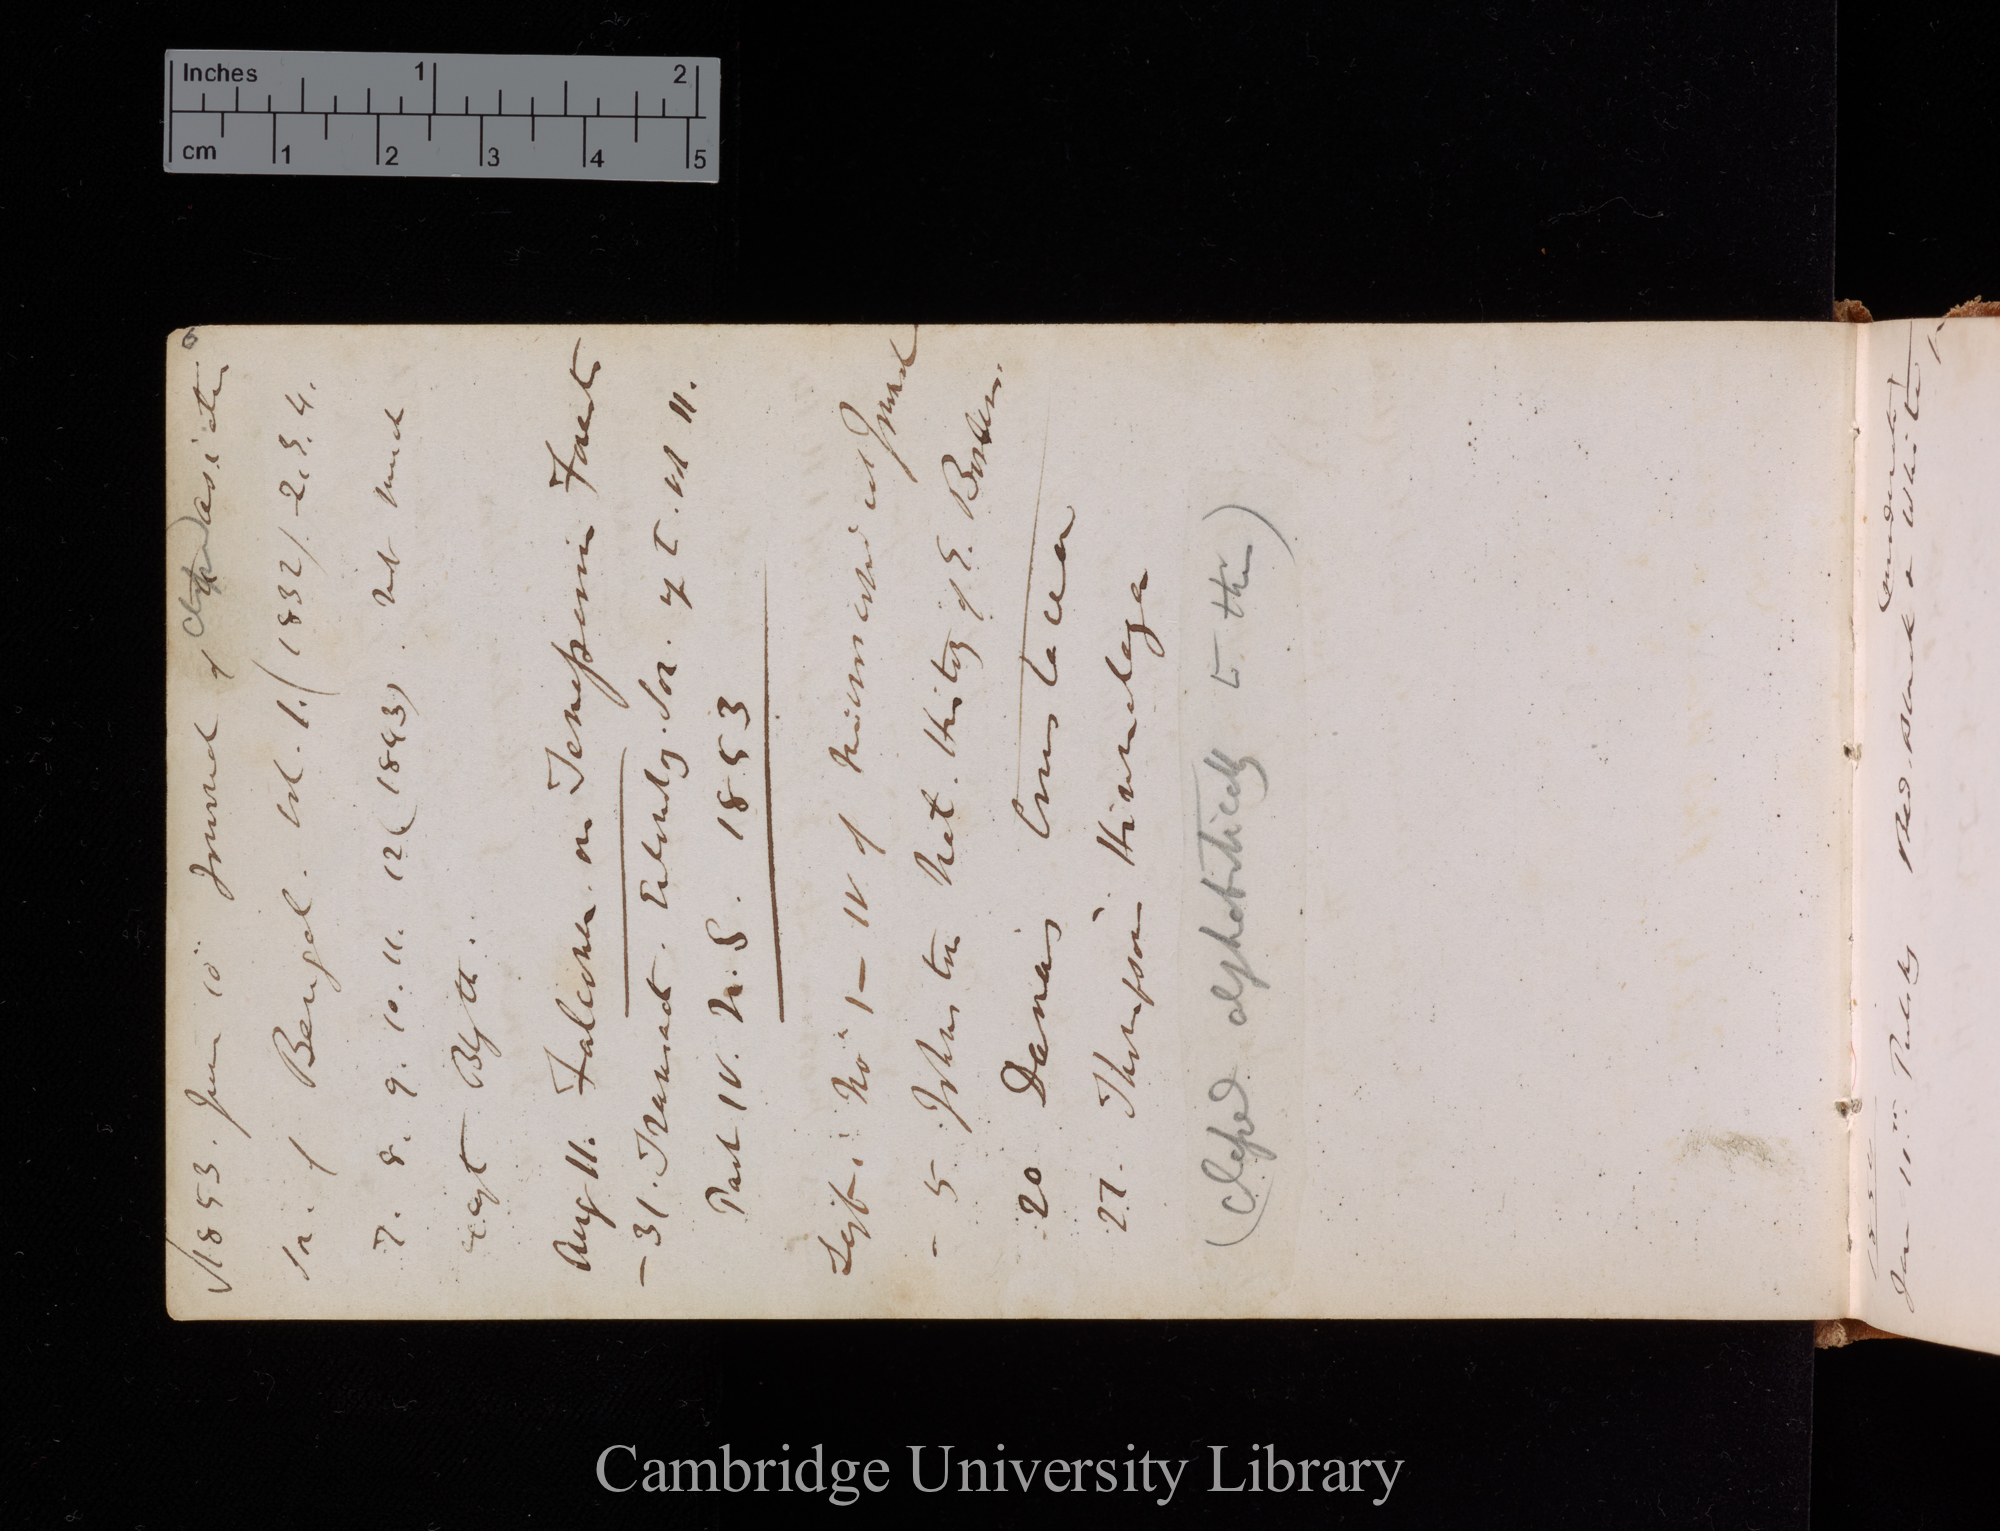 Inches 1 2
cm 1 2 3 4 5
6
1853. June 10th Journal of Asiatic
Soc. of Bengal. Vol. 1. (1832) – 2. 3. 4.
7. 8. 9. 10. 11. 12 (1843). not much
except Blyth.
Aug 11. Falconer on Tenasserim Forests
– 31. Transact. Entomolog. Soc. of L. vol 11.
Part IV. N.S. 1853
Sept. No. 1– IV of Microscopical Journal
– 5. Johnston Nat. History of E. Borders.
20 Dana's Crustacea
27. Thompson Himalaya
alphabetically to this)
Jan 11th